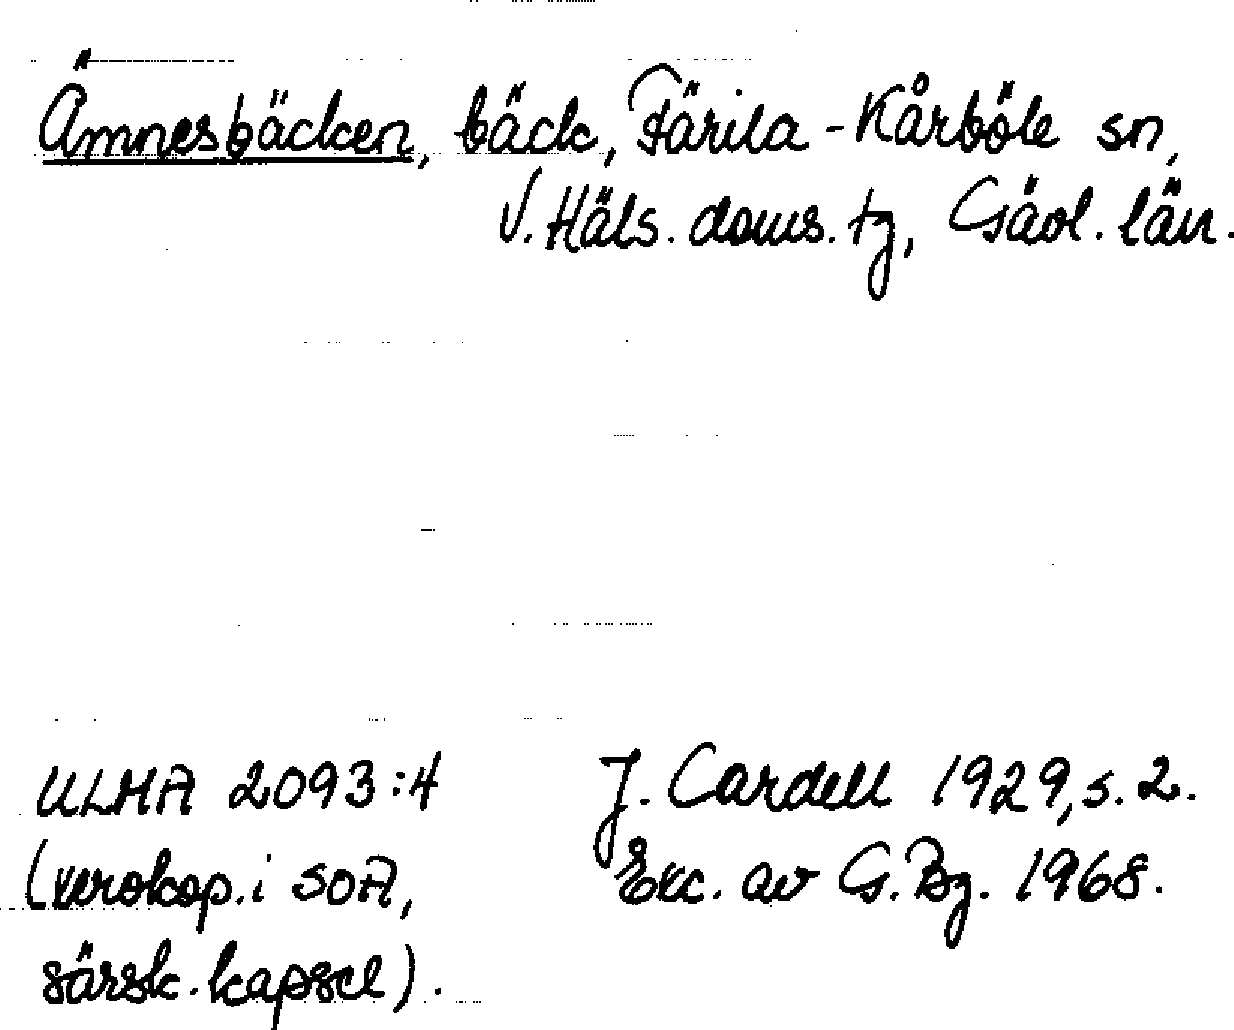 Ämnesbäcken, bäck, Färila-Kårböle sn,
V. Häls. doms. tg, Gävl. län.
ULMA 2093:4
(xerokop. i SOA,
särsk. kapsel).
J. Cardell 1929, s. 2.
Exc. av G. Bg. 1968.